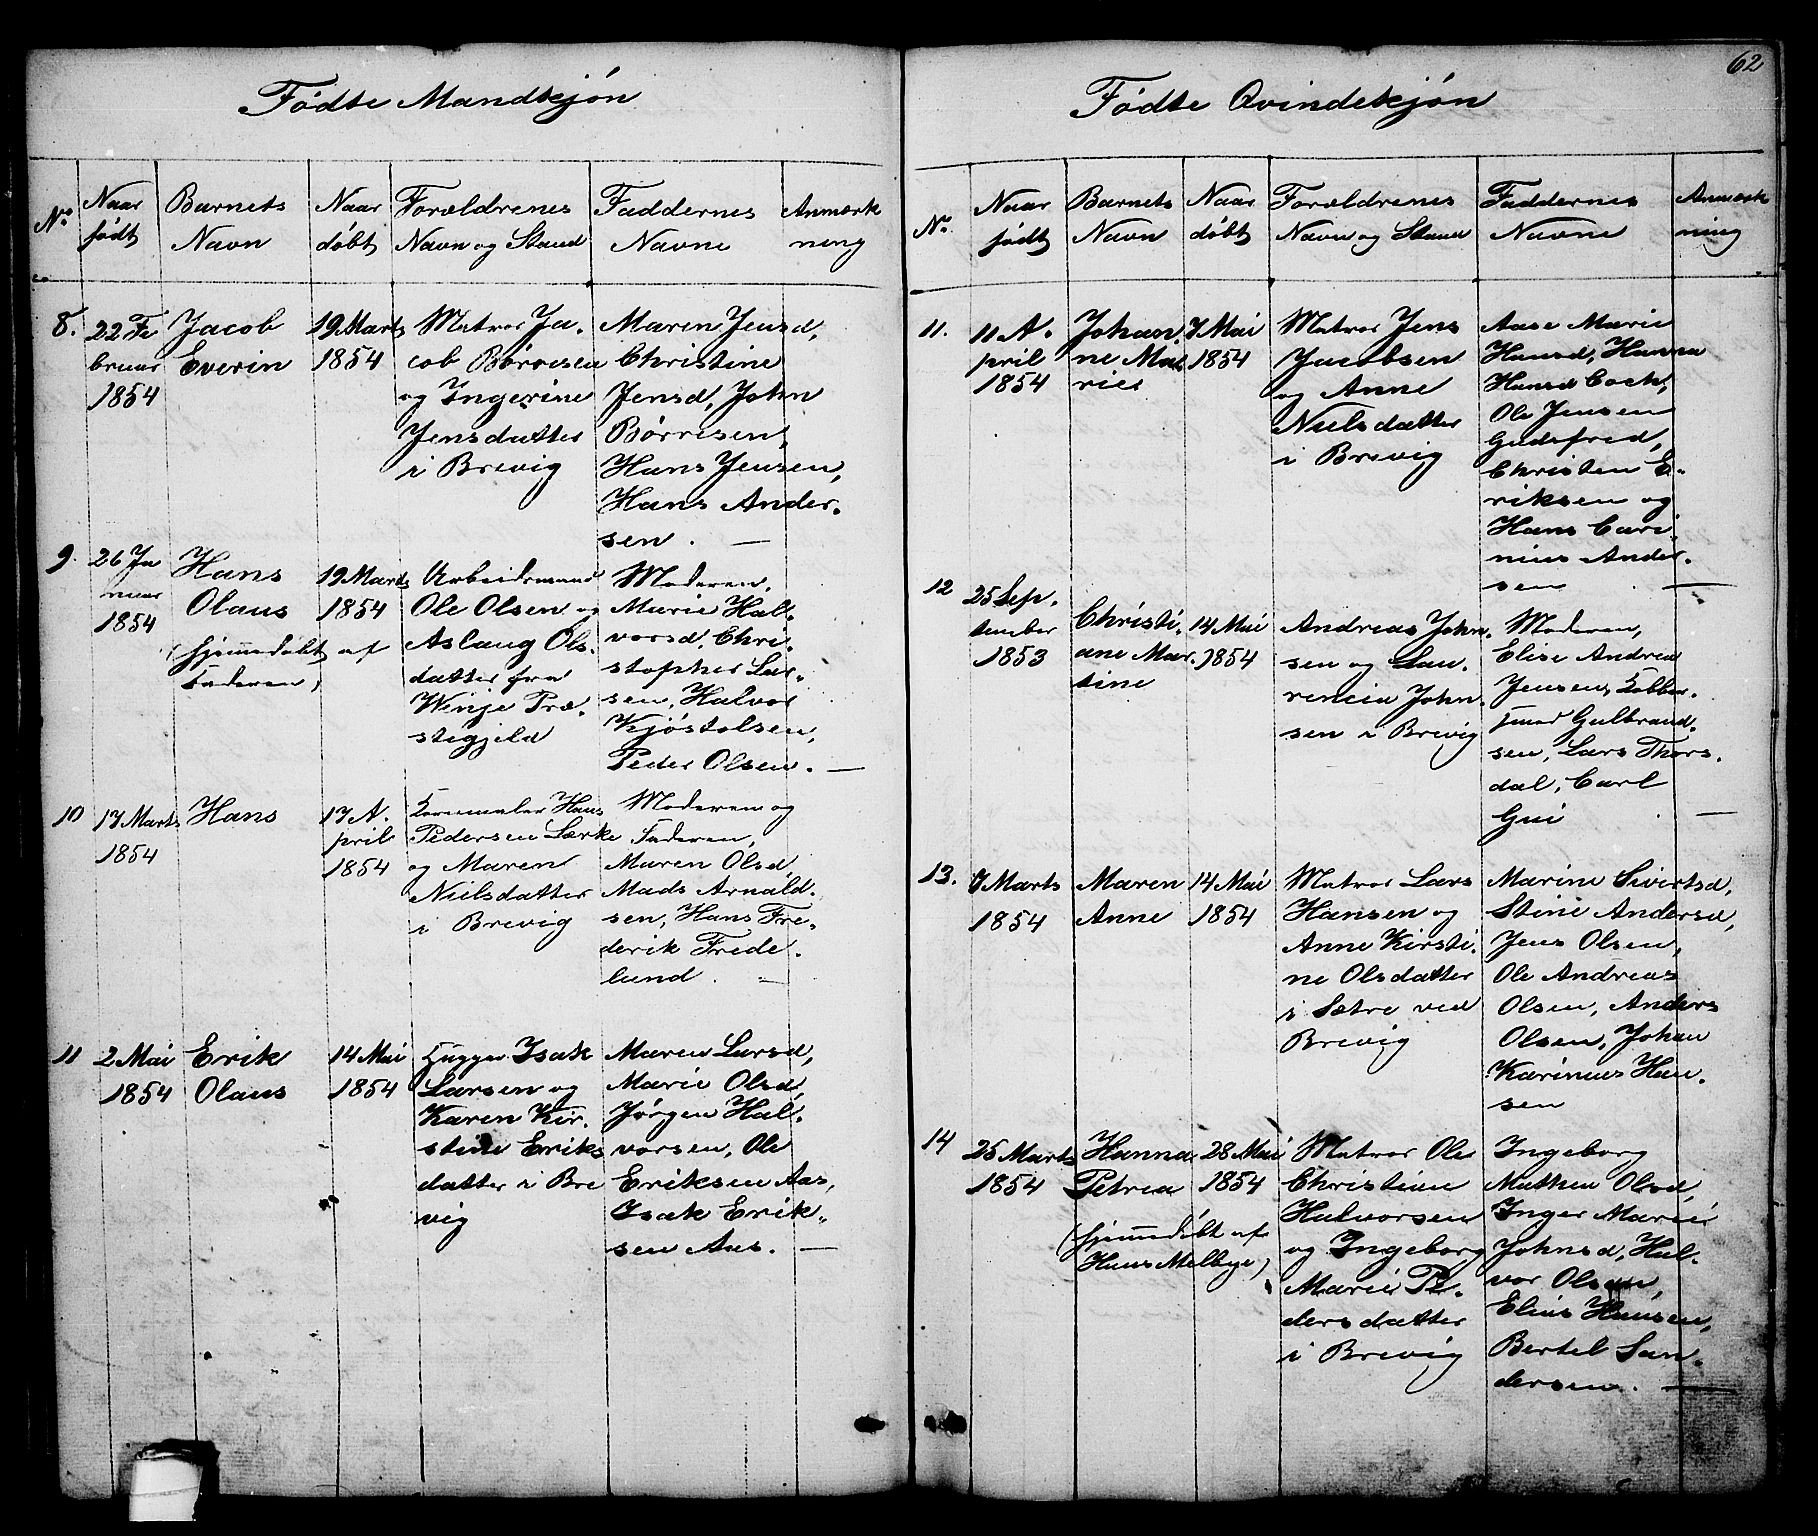 62
Fødte Mandkjøn
No
Naar født
Barnets Navn
Naar døbt
Forældrenes Navn og Stand
Faddernes Navne
Anmærkning
8.
22 Fe
bruar
1854
Jacob
Everin
19 Marts
1854
Matros Ja-
cob Børresen
og Ingerine
Jensdatter
i Brevig
Maren Jensd,
Christine
Jensd, John
Børresen,
Hans Jensen,
Hans Ander-
sen. —
9.
26 Ja
nuar
1854
Hans
Olaus
(hjemmedøbt af
Faderen)
19 Marts
1854
Arbeidsmand
Ole Olsen og
Aslaug Ols-
datter fra
Winje Præ-
stegjeld
Moderen,
Marie Hal-
vorsd, Chri-
stopher Lar-
sen, Halvor
Kjøstolsen,
Peder Olsen. —
10
17 Marts
1854
Hans
17 A-
pril
1854
Kornmaler Hans
Pedersen Lærke
og Maren
Nielsdatter
i Brevig
Moderen og
Faderen,
Maren Olsd,
Mads Arnald-
sen, Hans Fre-
derik Frede-
lund. —
11
2 Mai
1854
Erik
Olaus
14 Mai
1854
Hugger Isak
Larsen og
Karen Kir-
stine Eriks
datter i Bre
vig
Maren Larsd,
Marie Olsd,
Jørgen Hal-
vorsen, Ole
Eriksen Aas,
Isak Erik-
sen Aas. —
Fødte Qvindekjøn
No
Naar født
Barnets Navn
Naar døbt
Forældrenes Navn og Stand
Faddernes Navne
Anmærkning
11.
11 A-
pril
1854
Johan-
ne Ma-
rie
7 Mai
1854
Matros Jens
Jacobsen
og Anne
Nielsdatter
i Brevig
Aase Marie
Hansd, Hanna
Hansd Cock,
Ole Jensen
Gudsfred,
Christen E-
riksen og
Hans Cari-
nius Ander-
sen —
12
25 Sep-
tember
1853
Christi-
ane Mar-
tine
14 Mai
1854
Andreas John-
sen og Lau-
rencia John-
sen i Brevig
Moderen,
Elise Andrea
Jensen, Kobber-
smed Gulbrand-
sen, Lars Thors-
dal, Carl
Gui —
13.
7 Marts
1854
Maren
Anne
14 Mai
1854
Matros Lars
Hansen og
Anne Kirsti-
ne Olsdatter
i Sætre ved
Brevig
Marine Sivertsd,
Stine Andersd,
Jens Olsen,
Ole Andreas
Olsen, Anders
Olsen, Johan
Karinius Han-
sen
14
25 Marts
1854
Hanna
Petrea
(hjemmedøbt af
Hans Melbye)
28 Mai
1854
Matros Ole
Christian
Halvorsen
og Ingeborg
Marie Pe-
dersdatter
i Brevig
Ingeborg
Mathea Olsd,
Inger Marie
Johnsd, Hal-
vor Olsen,
Elius Hansen,
Bertel San-
dersen. —